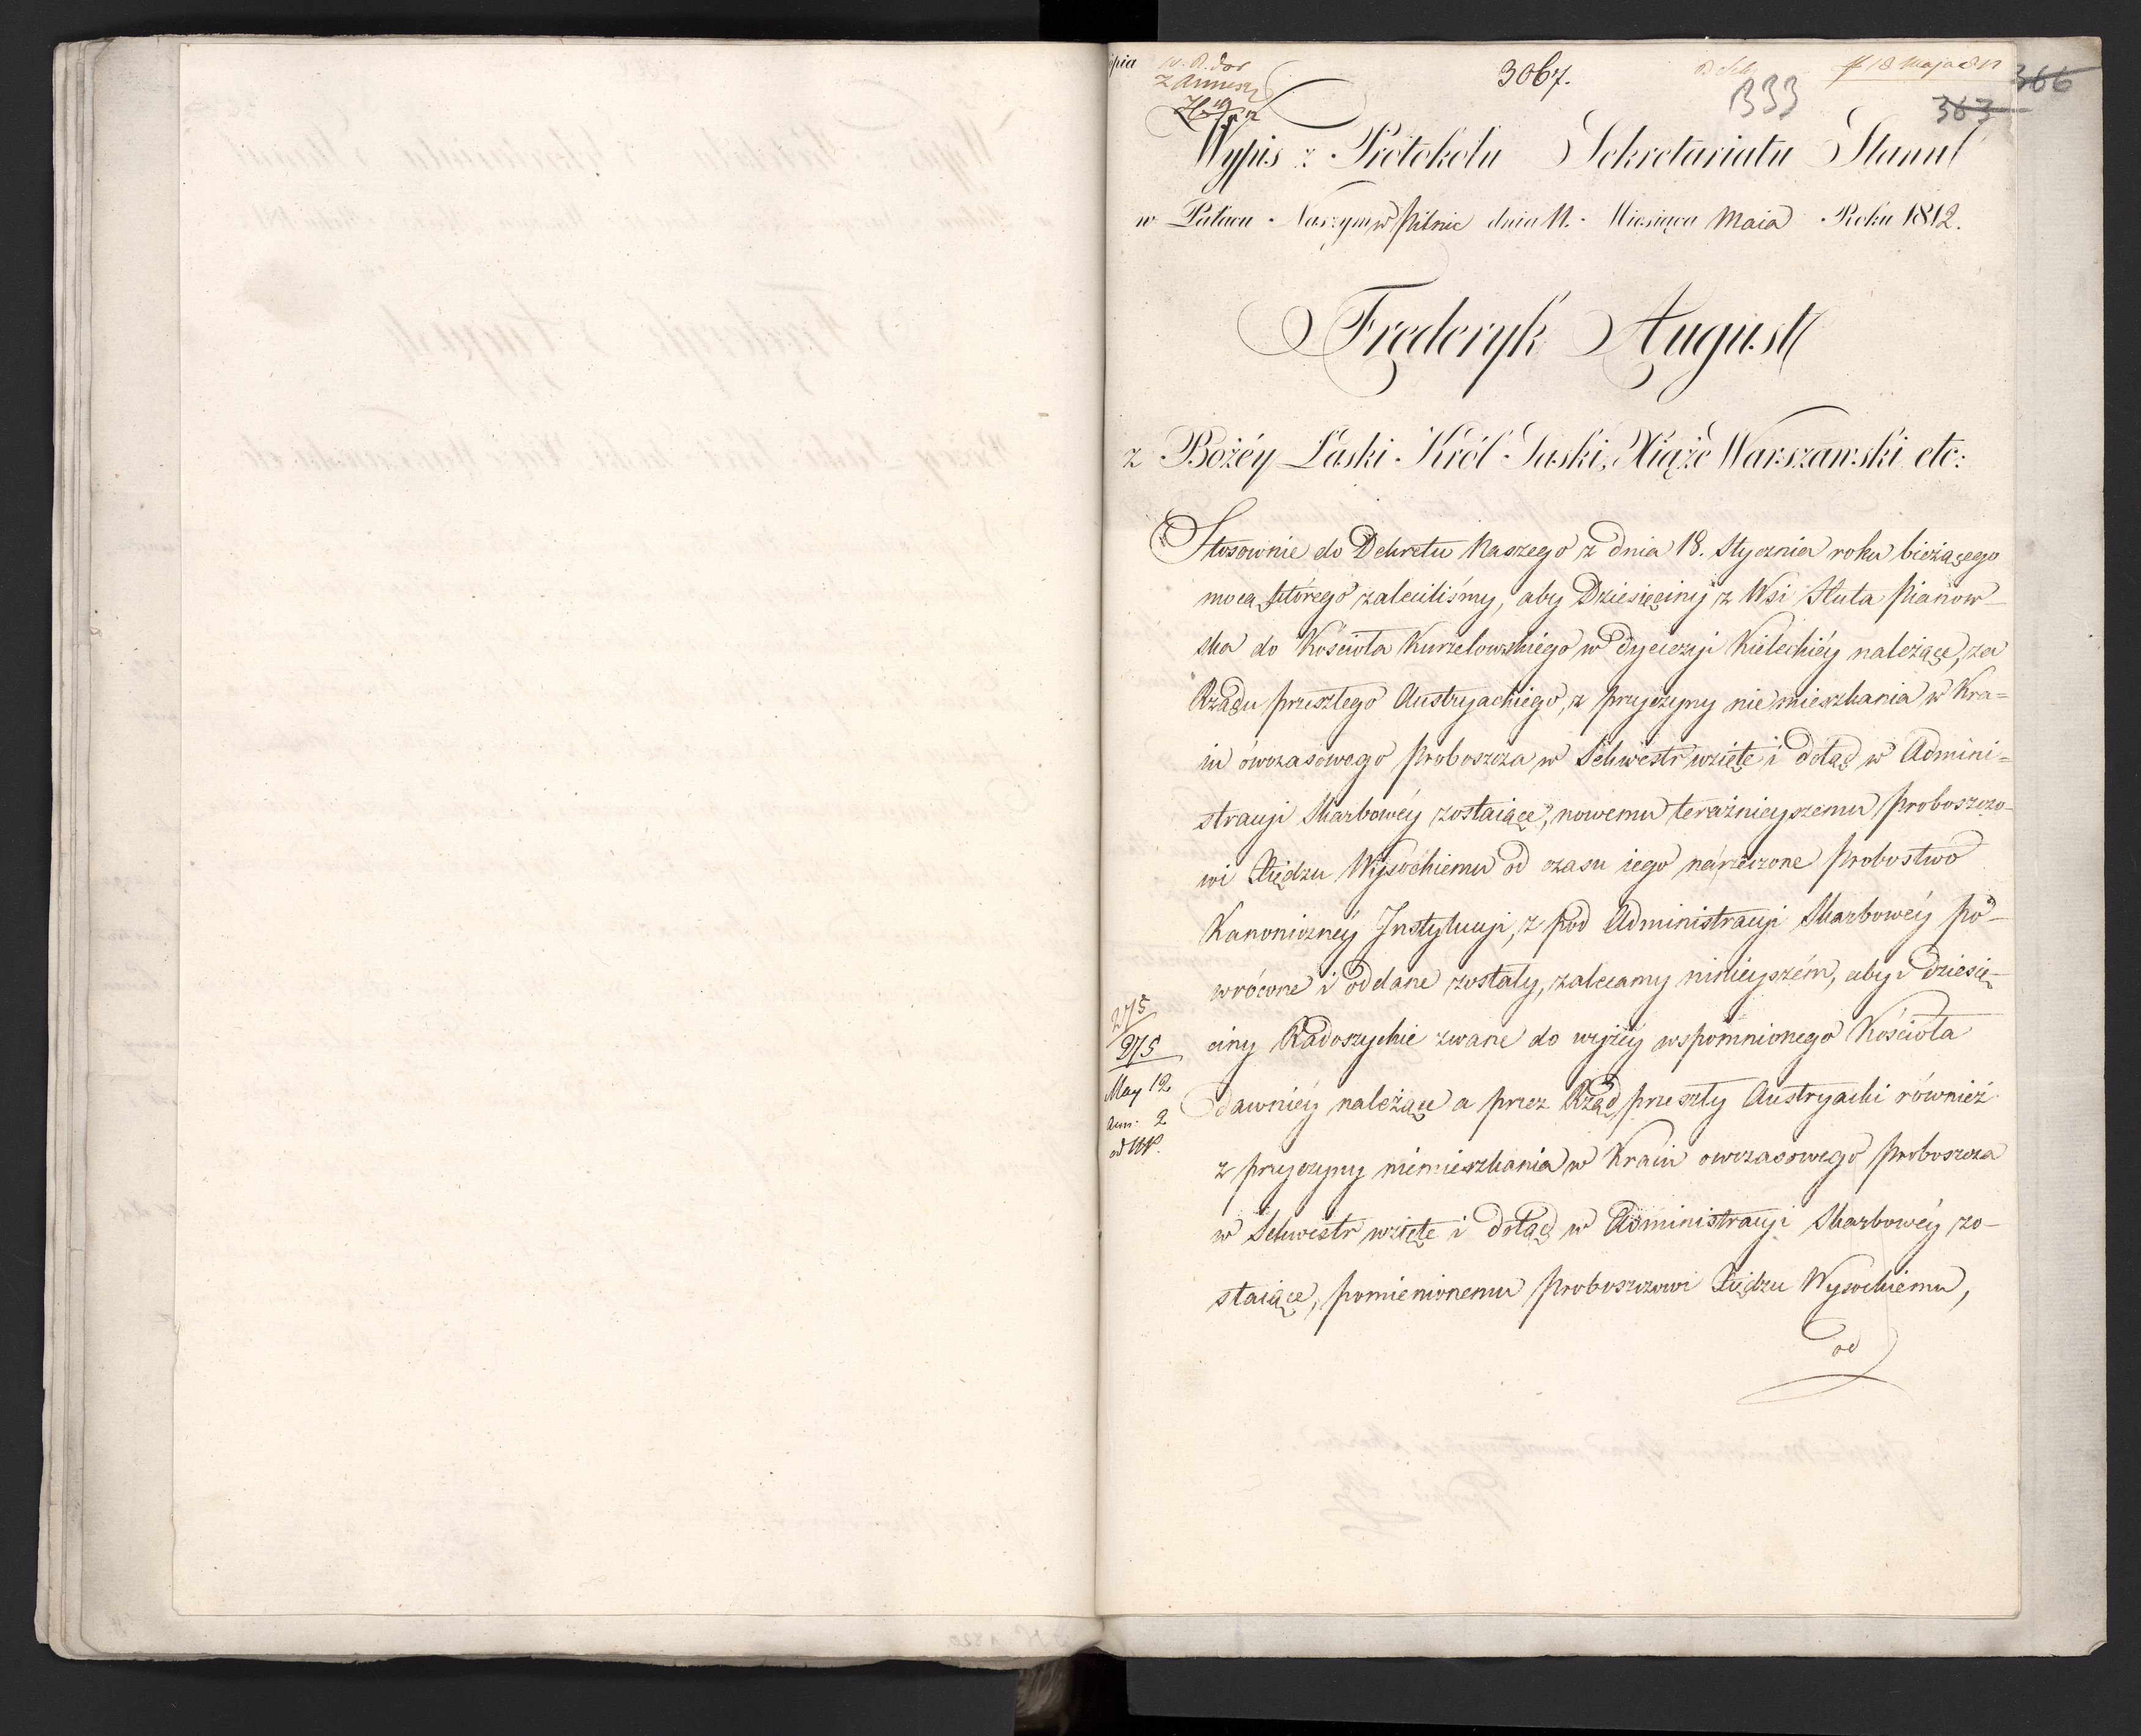 3067.
333
366
363
18 Maja
Wypis z Protokołu Sekretariatu Stanu
w Pałacu Naszym w Pilnic dnia 11. Miesiąca Maia Roku 1812.
Fryderyk August
z Bożéy Łaski Król Saski, Xiąże Warszawski etc:
Stosownie do Dekretu Naszego z dnia 18. Stycznia roku bieżącego
mocą którego zaleciliśmy, aby Dziesięciny z Wsi Huta Pianow-
ska do Kościoła Kurzelowskiego w Dyecezyi Kieleckiéy należące, za
Rządu przeszłego Austryackiego, z przyczyny nie mieszkania w Kra=
iu ówczasowego Proboszcza w Sekwestr wzięte i dotąd w Admini=
stracyi Skarbowéy zostaiące, nowemu teraźnieyszemu Proboszczo-
wi Xiędzu Wysockiemu od czasu iego na rzeczone Probostwo
Kanonicznéy Instytucyi, z pod Administracyi Skarbowéy po-
wrócone i oddane zostały, zalecamy ninieyszém, aby i dziesię-
ciny Radoszyckie zwane do wyżéy wspomnionego Kościoła
dawniéy należące a przez Rząd przeszły Austryacki również
z przyczyny niemieszkania w Kraiu owczasowego Proboszcza
w Sekwestr wzięte i dotąd w Administracyi Skarbowéy zo-
staiące, pomienionemu Proboszczowi Xiędzu Wysockiemu,
od
275
275
May 12
Ann: 2